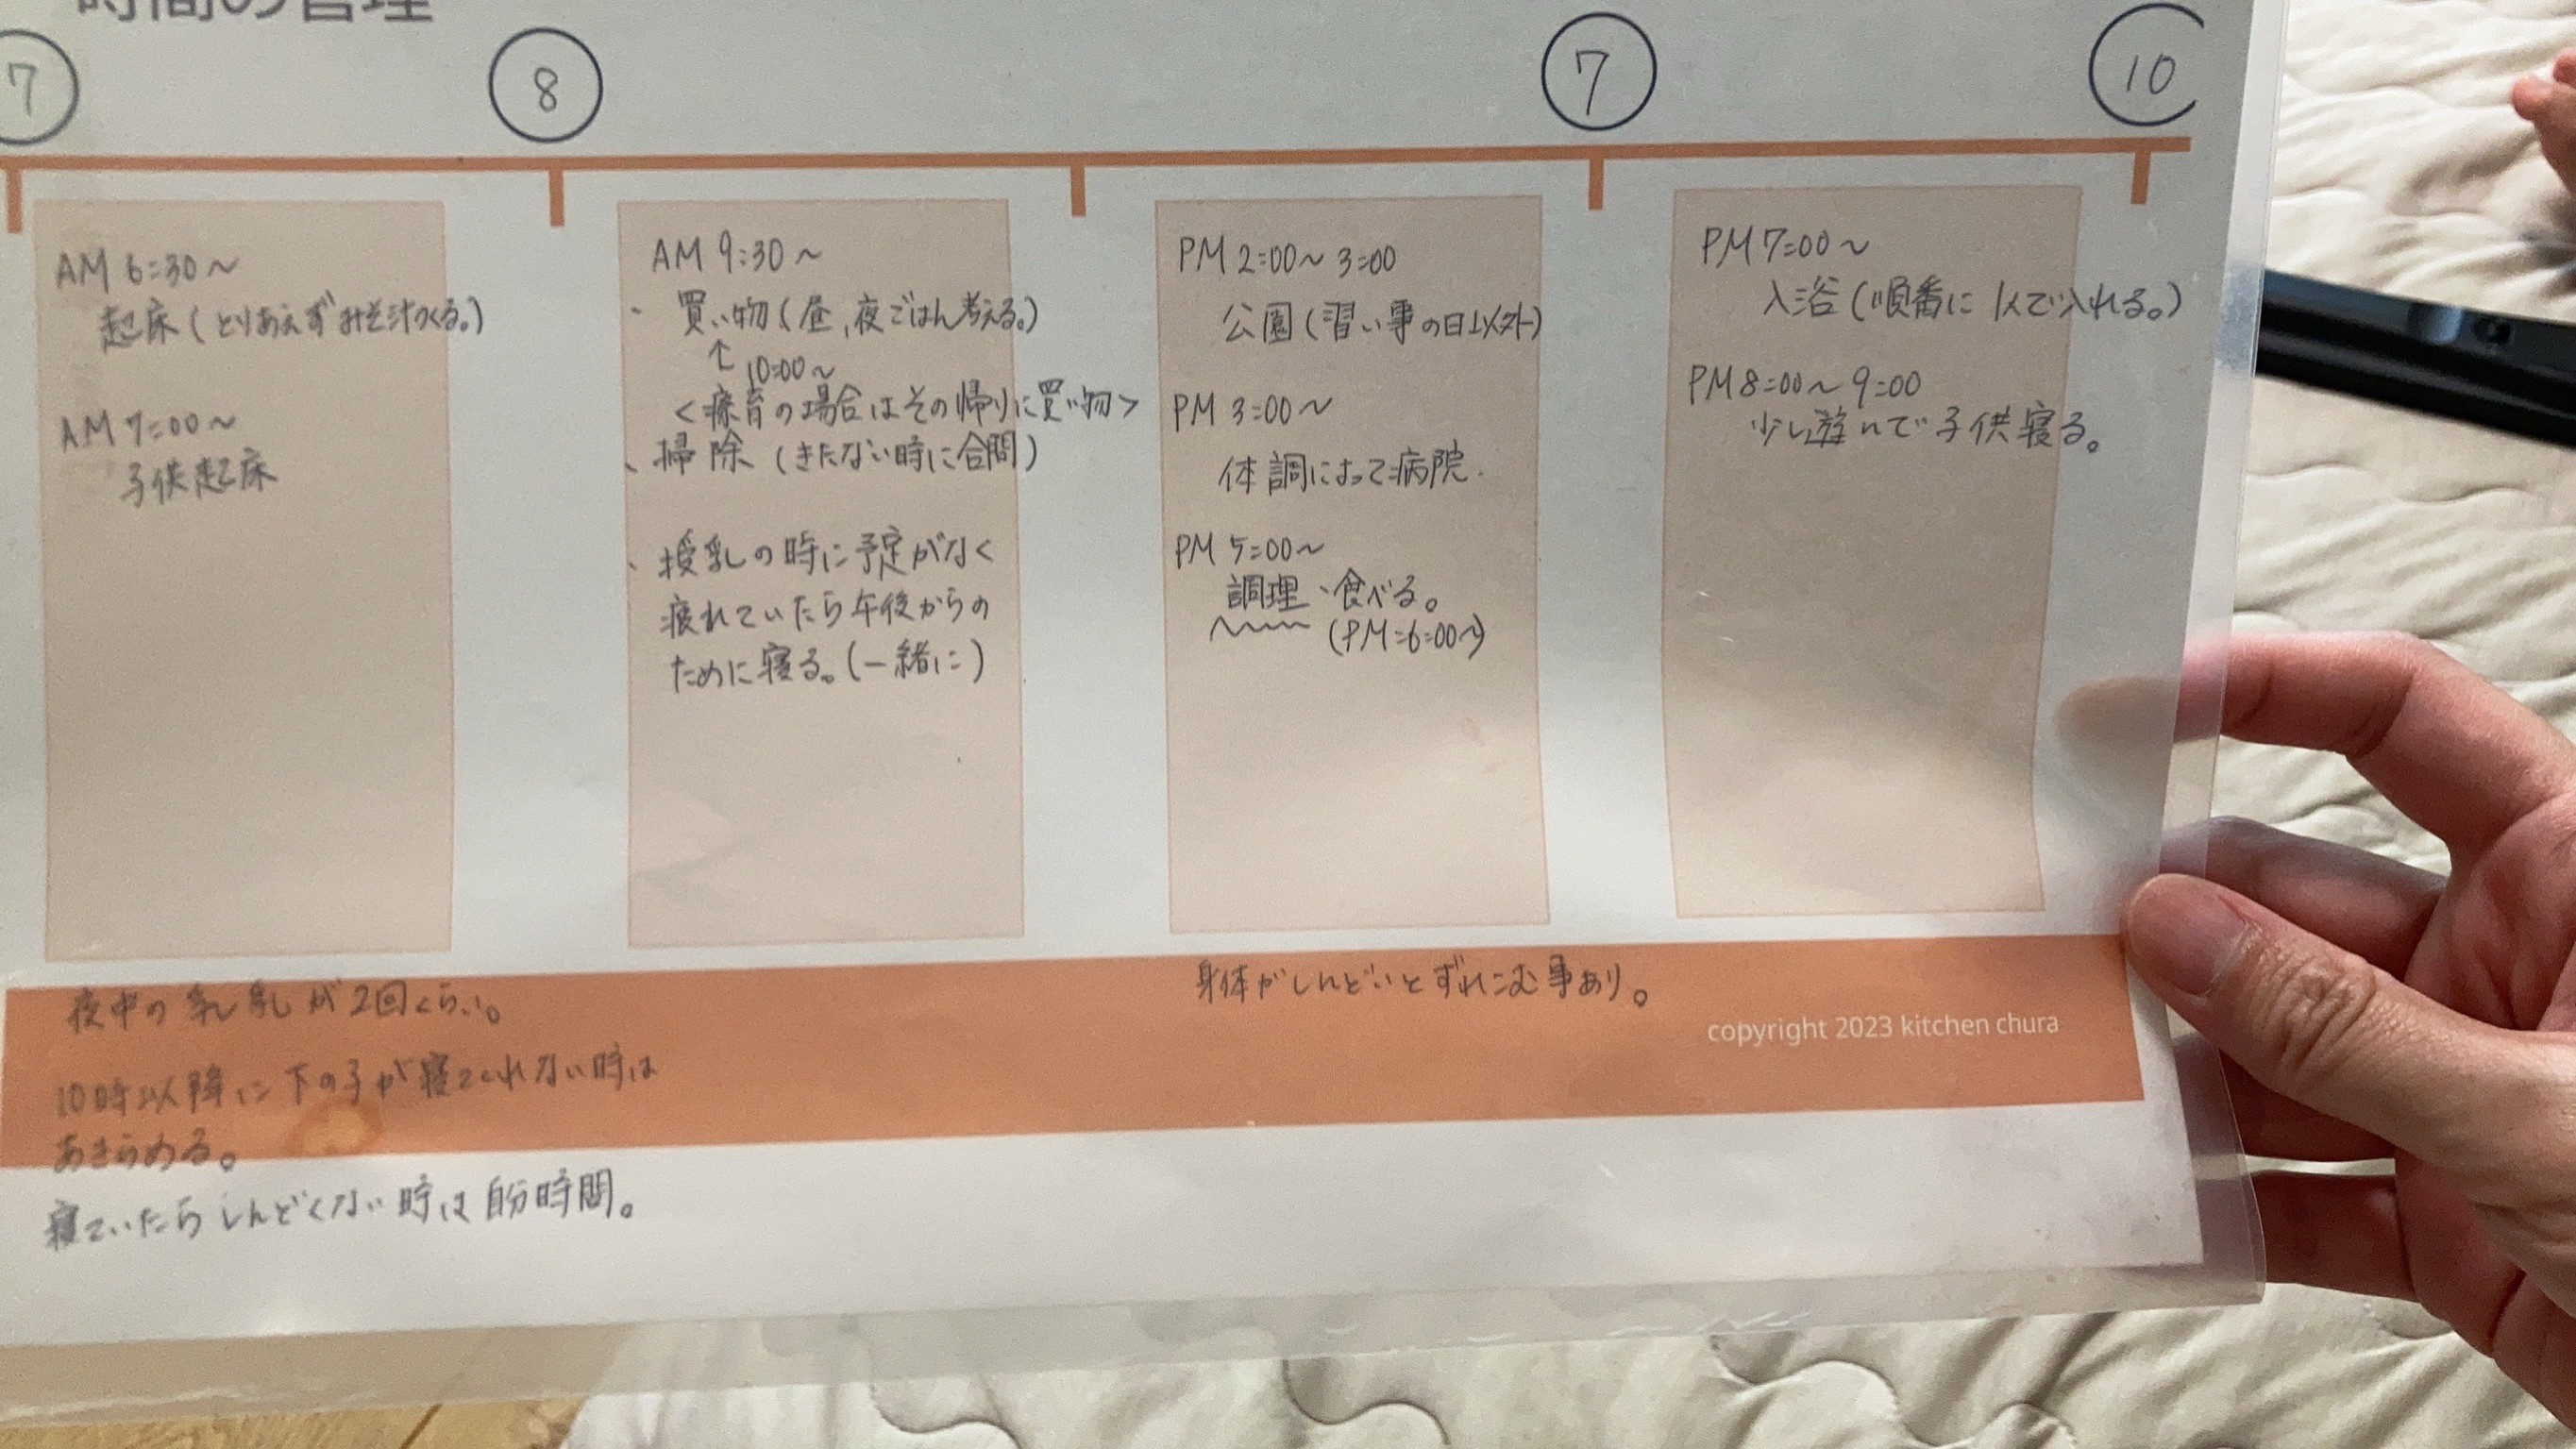 時間の管理
7
8
7
10
AM 6:30〜
起床(とりあえずみそ汁つくる。)
AM 7:00〜
子供起床
AM 9:30〜
・買い物(昼、夜ごはん考える。)
↑10:00〜
<療育の場合はその帰りに買い物>
、掃除(きたない時に合間)
、授乳の時に予定がなく
疲れていたら午後からの
ために寝る。(一緒に)
PM 2:00〜3:00
公園(習い事の日以外)
PM 3:00〜
体調によって病院.
PM 5:00〜
調理、食べる。
(PM=6:00〜)
PM 7:00〜
入浴(順番に1人で入れる。)
PM 8:00〜9:00
少し遊んで子供寝る。
夜中の乳が2回くらい。
10時以降に下の子が寝てくれない時は
あきらめる。
寝ていたらしんどくない時は自分時間。
身体がしんどいとずれこむ事あり。
copyright 2023 kitchen chura